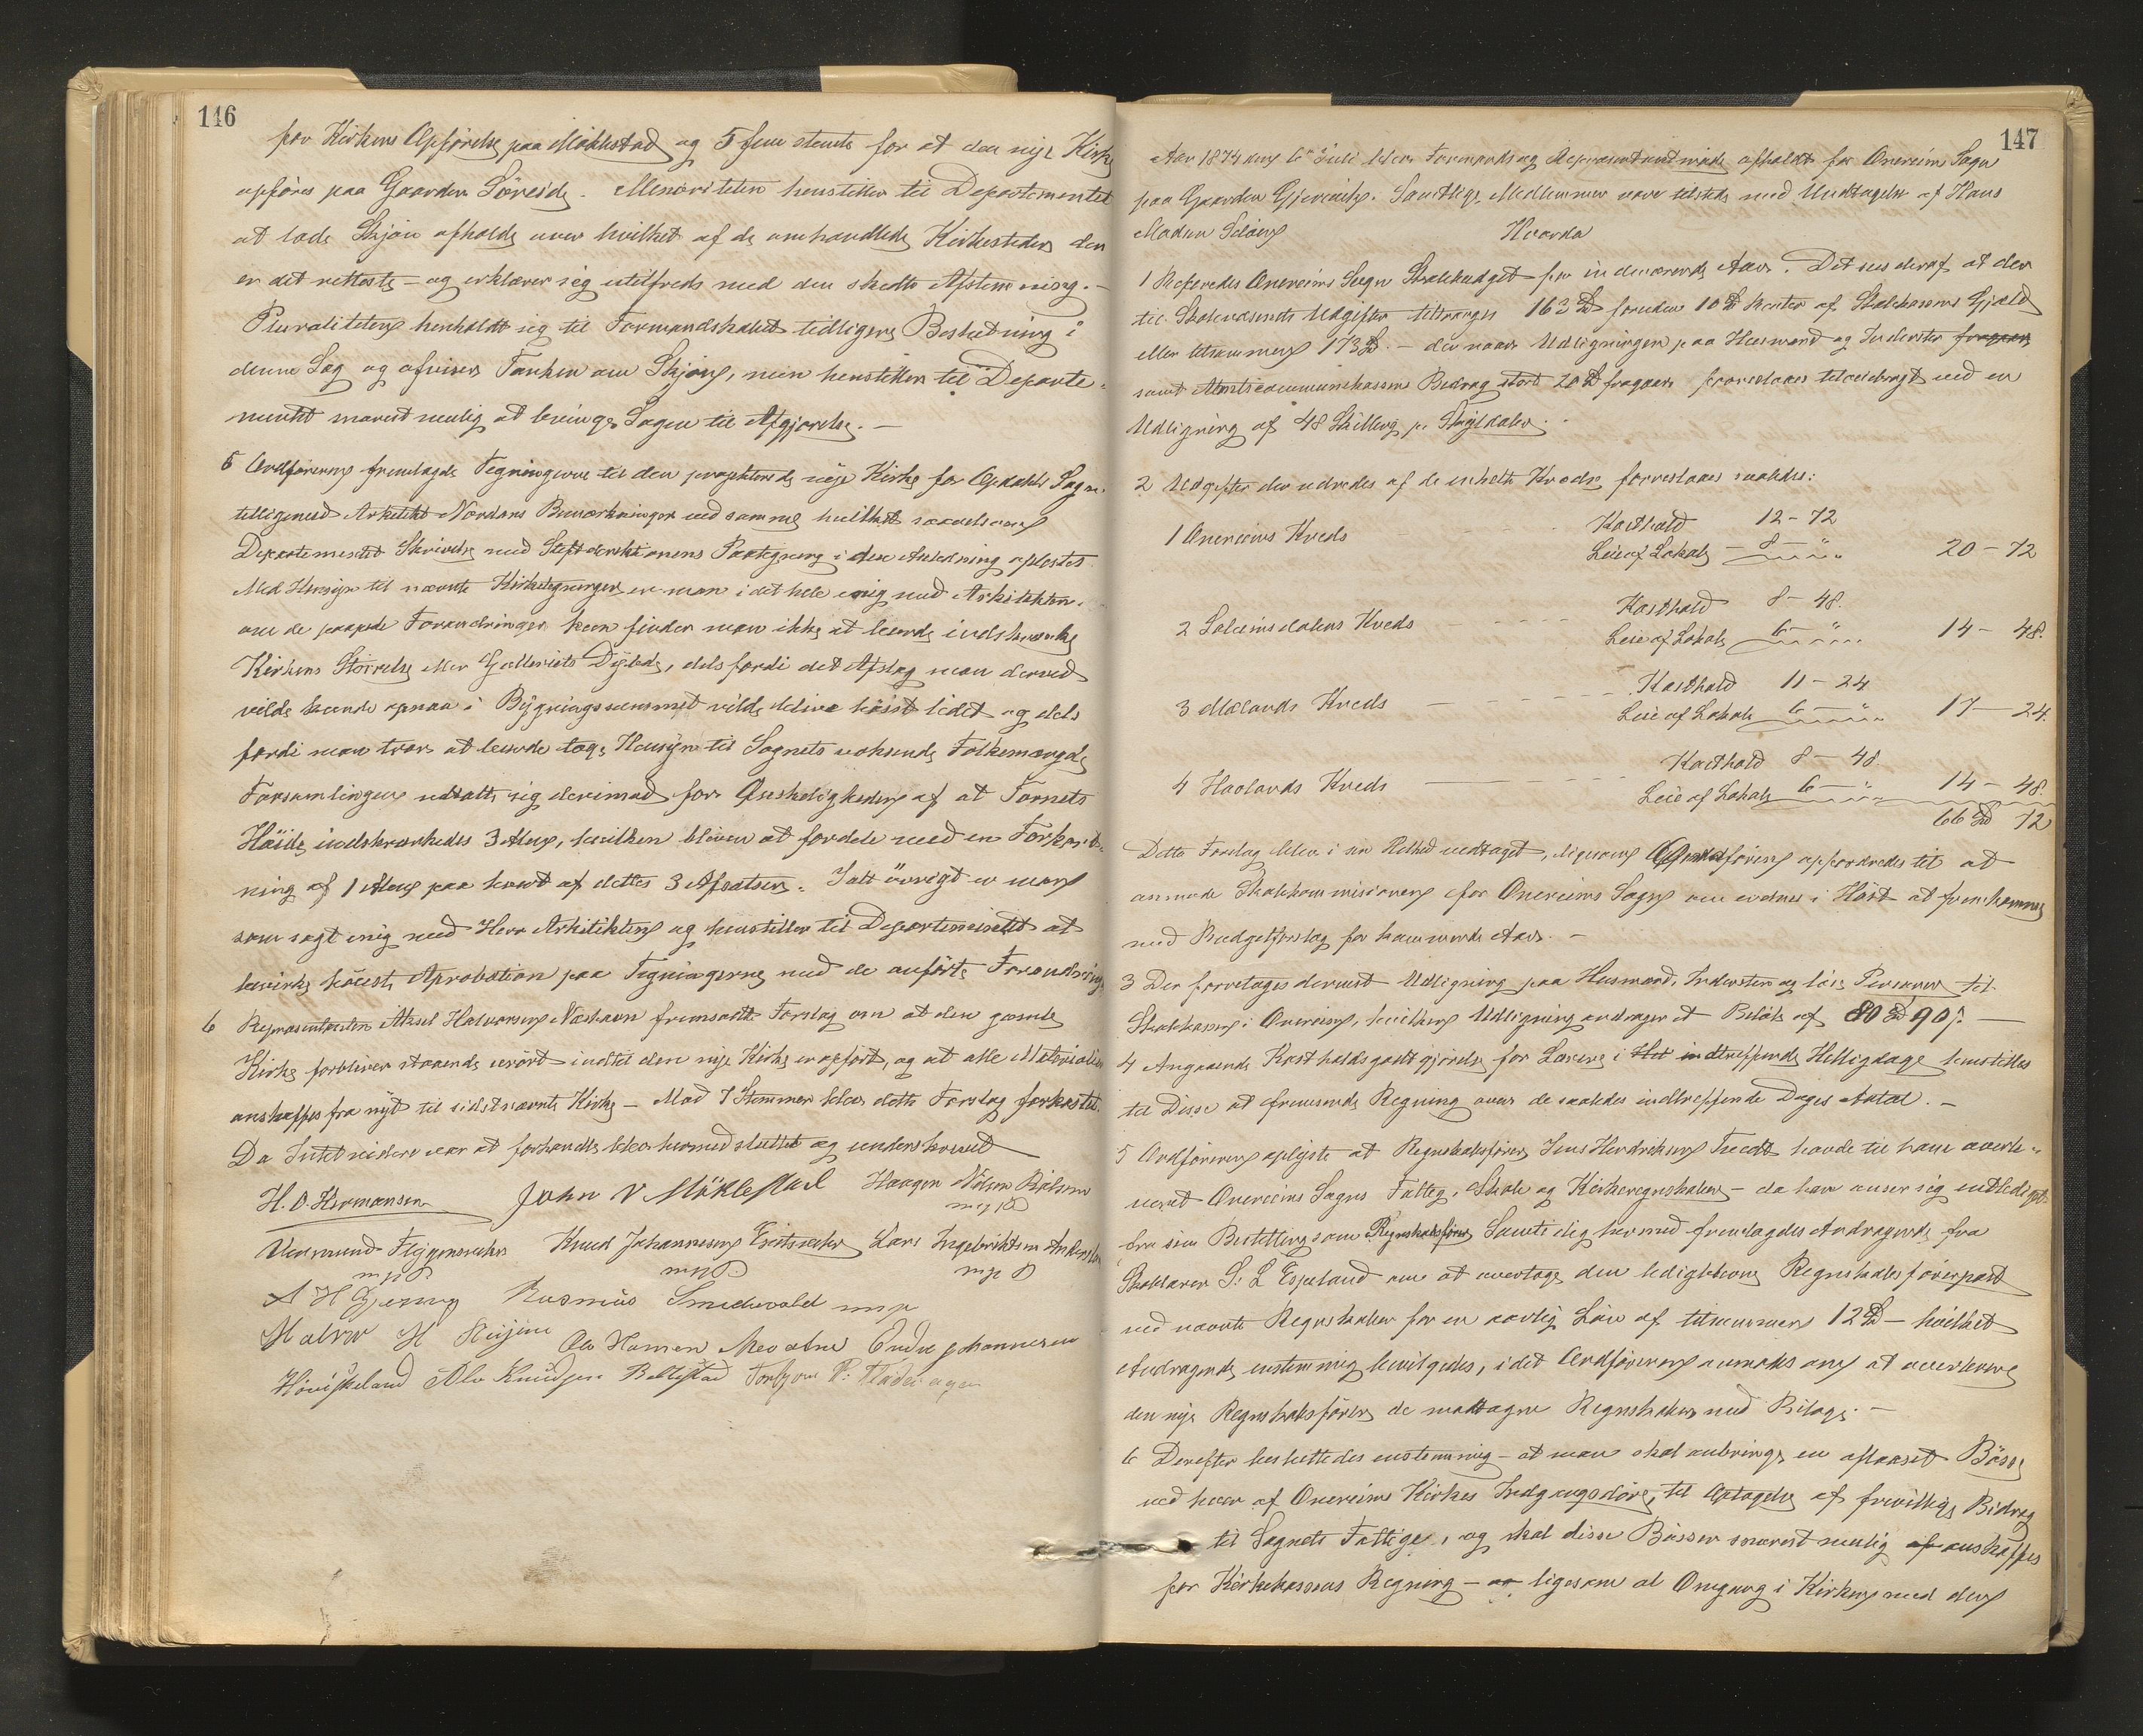 146
for Kirkens Opförelse paa Möklestad og 5 fem stemte for at den nye Kirke
opföres paa Gaarden Söreide. Minoriteten henstiller til Departementet
at lade Skjön afholde over hvilket af de omhandlede Kirkesteder der
er det retteste – og erklærer sig utilfreds med den skedte Afstemning. –
Pluraliteten henholdt sig til Formandskabets tidligere Beslutning i
denne Sag og afviser Tanken om Skjön, men henstiller til Departe-
mentet snarest mulig at bringe Sagen til Afgjørelse. –
5 Ordföreren fremlagde Tegningerne til den projekterede nye Kirke for Opdahls Sogn
tilligemed Arkitekt Nordans Bemærkninger ved samme hvilket saavelsom
Departementets Skrivelse med Stiftsdirektionens Paategning i den Anledning oplæstes.
Med Hensyn til nævnte Kirketegninger er man i det hele enig med Arkitekten
om de paapegede Forandringer kun finder man ikke at burde indskrænke
Kirkens Störrelse eller Galleriets Dybde, dels fordi det Afslag man derved
vilde kunde opnaa i Bygningssummen vilde blive höist lidet og dels
fordi man tror at burde tage Hensyn til Sognets voksende Folkemængde
Forsamlingen udtalte sig derimod for Önskeligheden af at Taarnets
Höide indskrænkedes 3 Alen, hvilken bliver at fordele med en Forkort-
ning af 1 Alen paa hvert af dettes 3 Afsatser. I alt övrigt er man
som sagt enig med Herr Arkitekten og henstiller til Departementet at
bevirke höieste Aprobation paa Tegningerne med de anförte Forandringer
6 Repræsentanten Aksel Halvorsen Næshavn fremsatte Forslag om at den gamle
Kirke forbliver staaende urört indtil den nye Kirke er opfört, og at alle Materialier
anskaffes fra nyt til sidstnævnte Kirke – Mod 7 Stemmer blev dette Forslag forkastet.
Da Intet videre var at forhandle blev hermed sluttet og underskrevet
H. O. Hermansen John V Möklestad Haagen Nilsen
mp
Knud Johannesen Lars Ingebrigtsen
mp mp mp
A H Rasmus Smedvold mp
Halvor H Ole Hansen Endre Johannesen
Ole Knudsen
147
Aar 1874 den 6te Juli blev Formands og Repræsentantmöde afholdt for Onereims Sogn
paa Gaarden Gjerevik. Samtlige Medlemmer vare tilstede med Undtagelse af Hans
Madsen Hvorda
1 Refereredes Onereims Sogn Skolebudget for indeværende Aar. Det sees deraf at der
til Skolevæsenets Udgifter tiltrænges 163 Spd foruden 10 Spd Renter af Skolekassens Gjæld
eller tilsammen 173 Spd. – der naar Udligningen paa Husmænd og Inderster
samt Amtscommunekassens Bidrag stort 20 Spd fragaar foreslaaes tilveiebragt ved en
Udligning af 48 Skilling pr. Skylddaler.
2 Udgifter der udredes af de enkelte Kredse foreslaaes saaledes:
1 Onereims Kreds Kosthold 12 – 72
Leie af Lokale 8 – " 20 – 72
2 Saleimsdalens Kreds Kosthold 8 – 48.
Leie af Lokale 6 – " 14 – 48.
3 Mælands Kreds Kosthold 11 – 24
Leie af Lokale 6 – " 17 – 24.
4 Haalands Kreds Kosthold 8 – 48.
Leie af Lokale 6 – " 14 – 48.
66 Spd 72
Dette Forslag blev i sin Helhed vedtaget, ligesom Ordföreren opfordredes til at
anmode Skolekommissionen for Onereims Sogn om endnu i Höst at fremkomme
med Budgetforslag for kommende Aar. –
3 Der foretages dernæst Udligning paa Husmænd, Inderster og löse Personer til
Skolekassen i Onereim, hvilken Udligning androger et Belöb af 80 Spd 90 s. –
4 Angaaende Kostholdsgodtgjörelse for Lærere i indtreffende Helligdage henstilles
til Disse at fremsende Regning over de saaledes indtreffende Dages Antal. –
5 Ordföreren oplyste at Regnskabsförer Jens Hendriksen Tveedt havde til ham overle-
veret Onereims Sogns Fattig, Skole og Kirkeregnskaber – da han anser sig entlediget
fra sin Bestilling som Regnskabsförer. Samtidig hermed fremlagdes Andragende fra
Skolelærer S. L Espeland om at overtage den ledigblevne Regnskabsförerpost
ved nævnte Regnskaber for en aarlig Lön af tilsammen 12 Spd – hvilket
Andragende enstemmig bevilgedes, idet Ordföreren anmodes om at overlevere
den nye Regnskabsförer de modtagne Regnskaber med Bilage. –
6 Derefter besluttedes enstemmig – at man skal anbringe en aflaaset Bösse
ved hver af Onereims Kirkes Indgangsdöre, til Optagelse af frivillige Bidrag
til Sognets Fattige, og skal disse Bösser snarest mulig af anskaffes
for Kirkekassens Regning – og ligesom al Omgang i Kirken med den